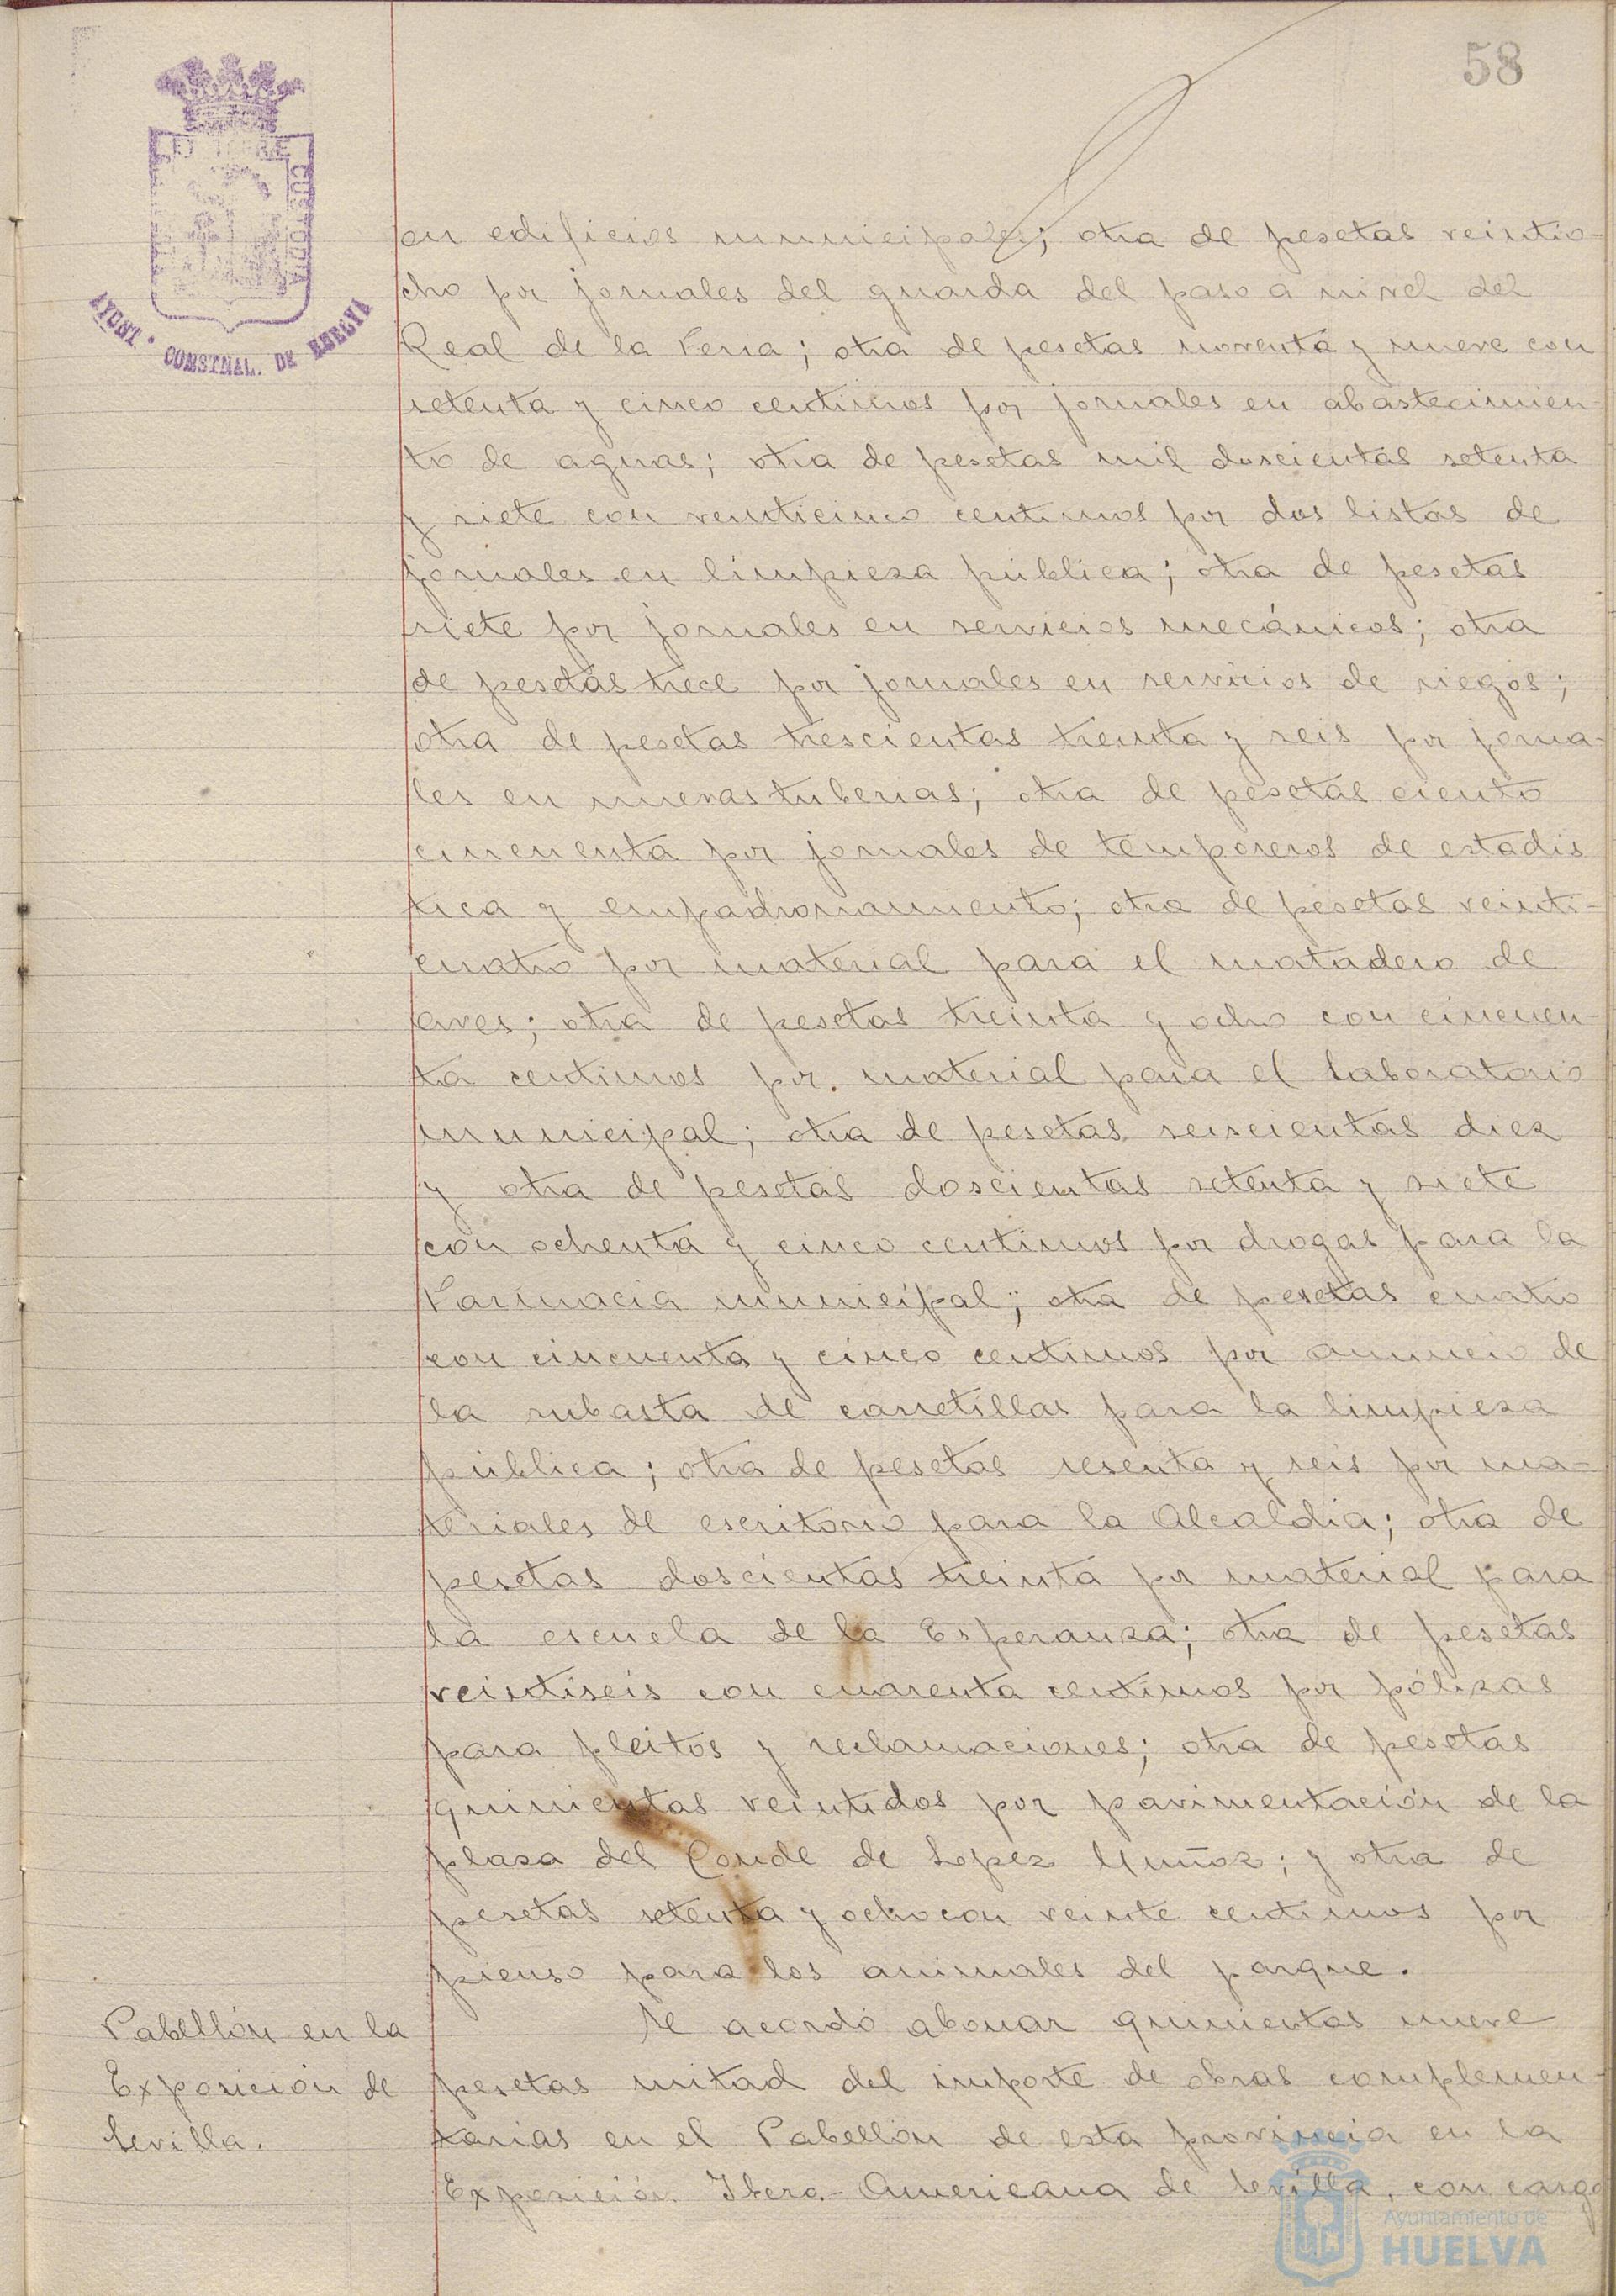 58
ET TERRE
CUSTODIA
AYUNT. CONSTNAL. DE HUELVA
en edificios municipales; otra de pesetas veintio-
cho por jornales del guarda del paso a nivel del
Real de la Feria; otra de pesetas noventa y nueve con
setenta y cinco centimos por jornales en abastecimien-
to de aguas; otra de pesetas mil doscientas setenta
y siete con veinticinco centimos por dos listas de
jornales en limpieza pública; otra de pesetas
siete por jornales en servicios mecánicos; otra
de pesetas trece por jornales en servicios de riegos;
otra de pesetas trescientas treinta y seis por jorna-
les en nuevas tuberias; otra de pesetas ciento
cincuenta por jornales de temporeros de estadis
tica y empadronamiento; otra de pesetas veinti-
cuatro por material para el matadero de
aves; otra de pesetas treinta y ocho con cincuen-
ta centimos por material para el Laboratorio
municipal; otra de pesetas seiscientas diez
y otra de pesetas doscientas setenta y siete
con ochenta y cinco centimos por drogas para la
Farmacia municipal; otra de pesetas cuatro
con cincuenta y cinco centimos por anuncio de
la subasta de carretillas para la limpieza
pública; otra de pesetas sesenta y seis por ma-
teriales de escritorio para la Alcaldia; otra de
pesetas doscientas treinta por material para
la escuela de la Esperanza; otra de pesetas
veintiseis con cuarenta centimos por pólizas
para pleitos y reclamaciones; otra de pesetas
quinientas veintidos por pavimentación de la
plaza del Conde de Lopez Muñoz; y otra de
pesetas setenta y ocho con veinte centimos por
pienso para los animales del parque.
Pabellón en la
Exposición de
Sevilla.
Se acordó abonar quinientas nueve
pesetas mitad del importe de obras complemen-
tarias en el Pabellón de esta provincia en la
Exposición Ibero-Americana de Sevilla, con cargo
Ayuntamiento de
HUELVA